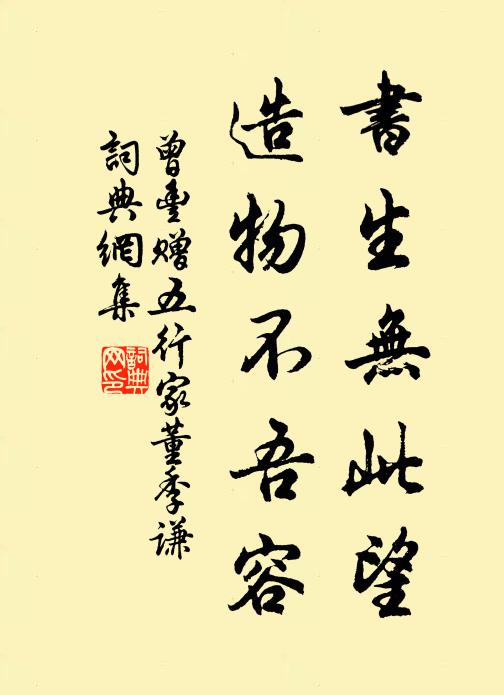 書生無此望
造物不吾容
曾豐贈五行家董季謙
詞典網集
詞典网印